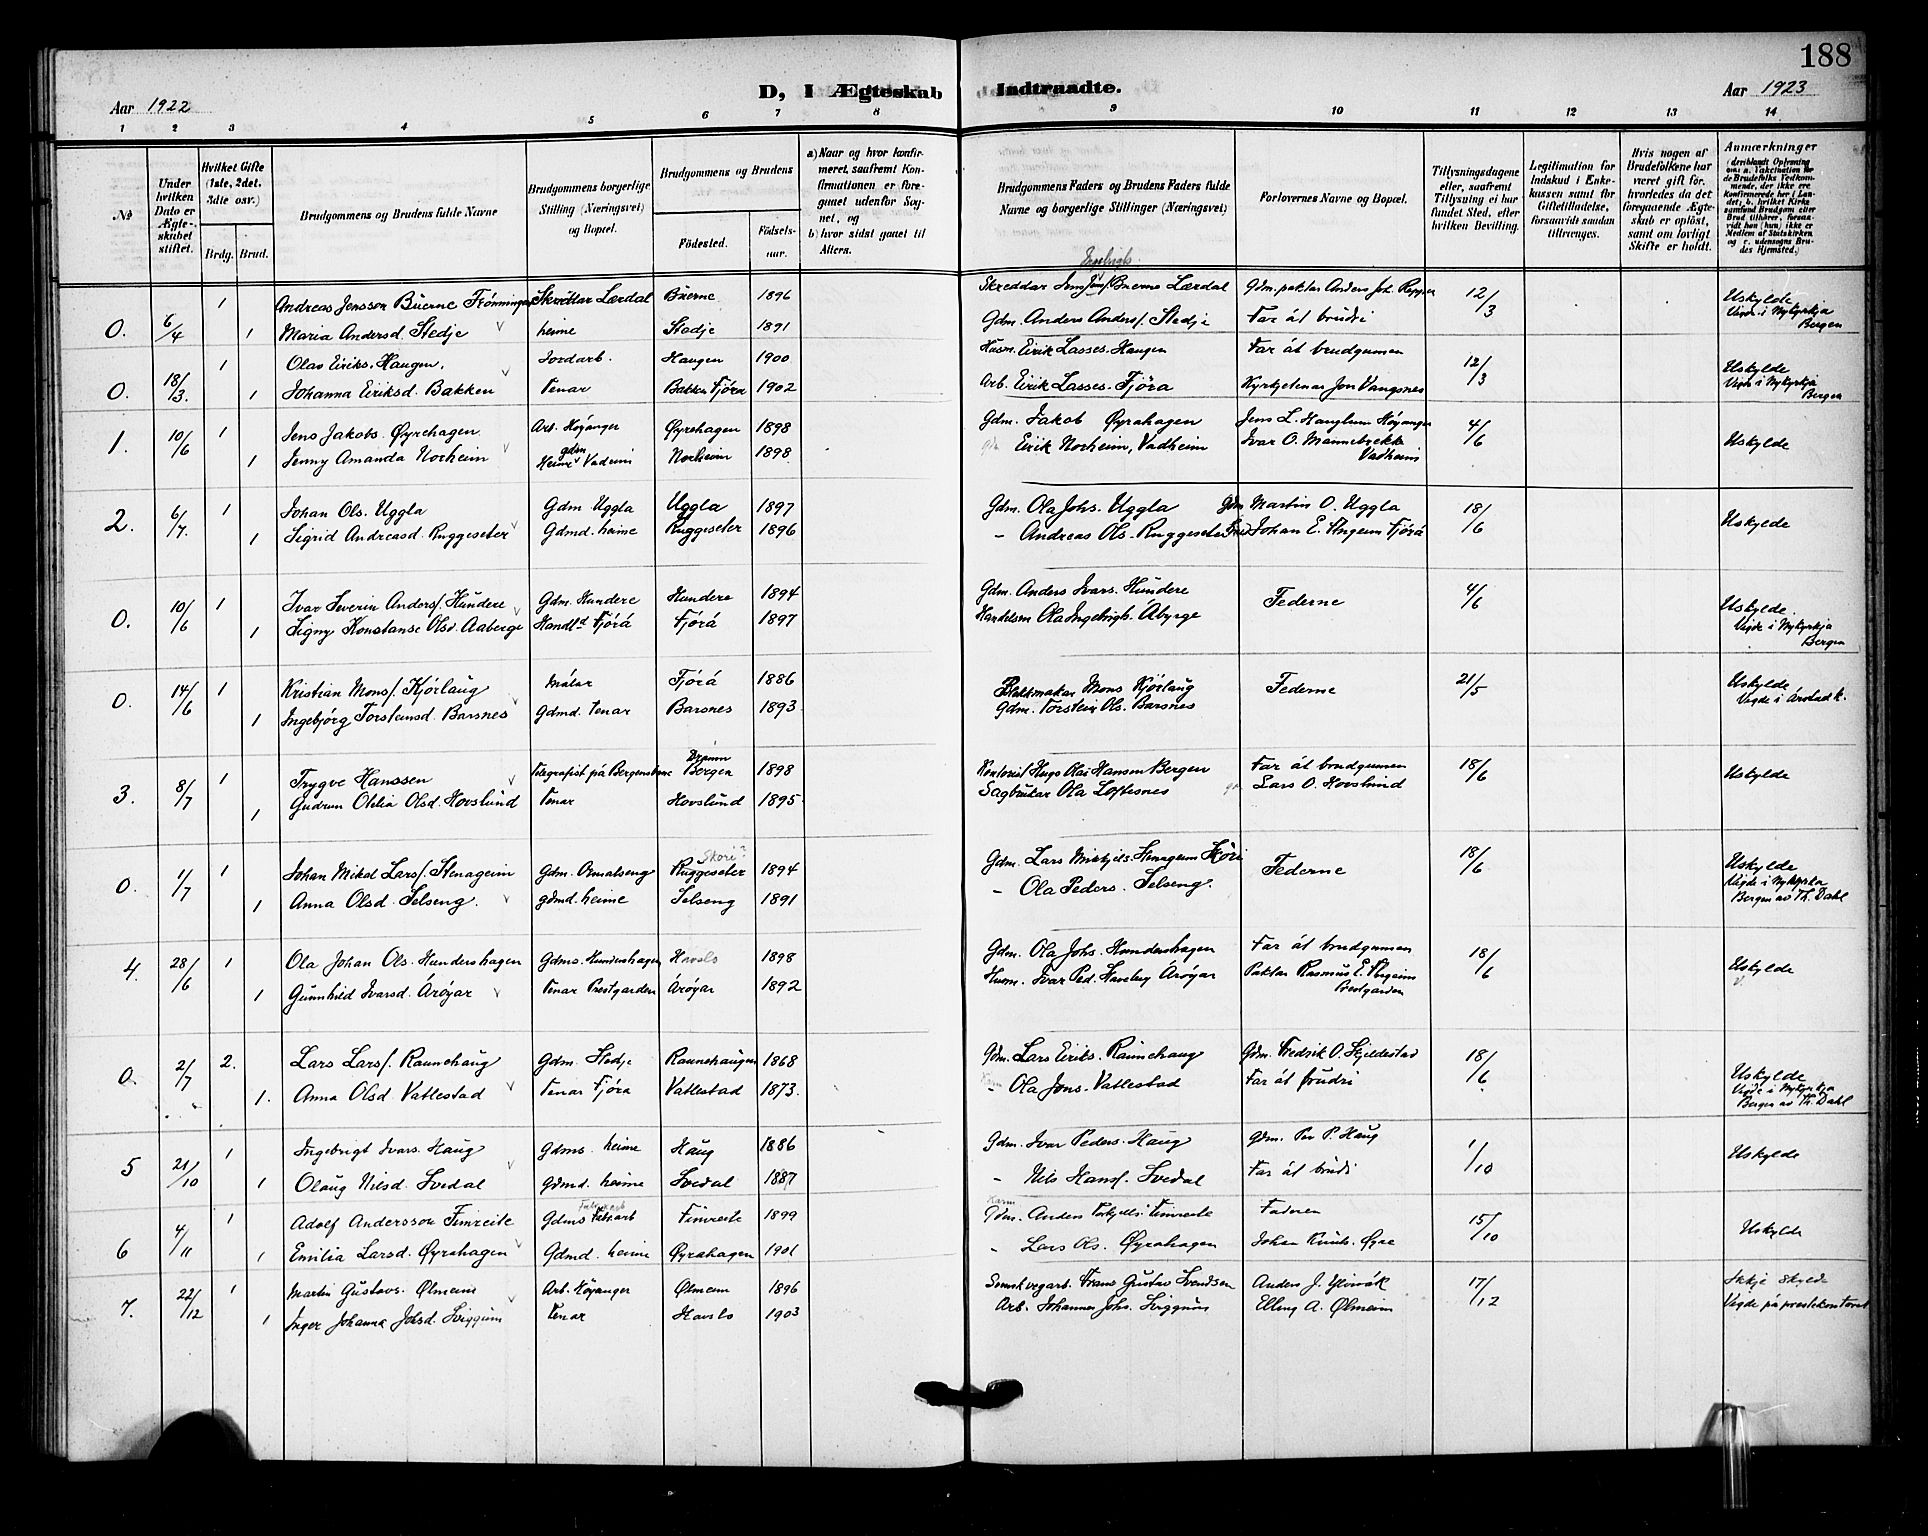 188
D, I Ægteskab Indtraadte.
Aar 1922
Aar 1923
1 2 3 4 5 6 7 8 9 10 11 12 13 14
№
Under hvilken Dato er Ægteskabet stiftet.
Hvilket Gifte (1ste, 2det, 3die osv.)
Brdg. Brud.
Brudgommens og Brudens fulde Navne
Brudgommens borgerlige Stilling (Næringsvei) og Bopæl.
Brudgommens og Brudens
Fødested.
Fødselsaar.
a) Naar og hvor konfirmeret, saafremt Konfirmationen er foregaaet udenfor Sognet, og
b) hvor sidst gaaet til Alters.
Brudgommens Faders og Brudens Faders fulde Navne og borgerlige Stillinger (Næringsvei)
Forlovernes Navne og Bopæl.
Tillysningsdagene eller, saafremt Tillysning ei har fundet Sted, efter hvilken Bevilling.
Legitimation for Indskud i Enkekassen samt for Giftetilladelse, forsaavidt saadan tiltrænges.
Hvis nogen af Brudefolkene har været gift før, hvorledes da det foregaaende Ægteskab er opløst, samt om lovligt Skifte er holdt.
Anmærkninger
0. 6/4 1 Andreas Jensson Buerne Skræddar Lærdal Buerne 1896 Buerne Lærdal 12/3 Uskylde
1 Maria Andersd. Stedje heime Stedje 1891 Gdm. Anders Anders/. Stedje Far åt brudri Vigde i Nykyrkja Bergen
0. 18/3. 1 Olav Eiriks. Haugen. Jordarb. Haugen 1900 Husm. Eirik Lasses. Haugen Far åt brudgumen 12/3 Uskylde
1 Johanna Eiriksd. Bakken Tenar Bakken Fjöra 1902 Arb. Eirik Lasses. Fjöra Kyrkjetenar Jon Vangsnes Vigde i Nykyrkja Bergen
1. 10/6 1 Jens Jakobs. Øyrehagen Arb. Høyanger Øyrehagen 1898 Gdm. Jakob Øyrahagen Jens L. Høyanger 4/6 Uskylde
1 Jenny Amanda Norheim gdm Heime Norheim 1898 Eirik Norheim, Vadheim Ivar O. Vadheim
2. 6/7. 1 Johan Ols. Uggla Gdm Uggla Uggla 1897 Gdm. Ola Johs. Uggla Gdm Martin O. Uggla 18/6 Uskylde
1 Sigrid Andreasd. Ruggeseter Gdmd. heime Ruggeseter 1896 - Andreas Ols. Ruggeseter Johan E. Fjörå
0. 10/6 1 Ivar Severin Anders/. Hundere Gdm. Hundere Hundere 1894 Gdm. Anders Ivars. Hundere Federne 4/6 Uskylde.
1 Signy Konstanse Olsd. Aaberge Handl.d Fjörå Fjörå 1897 Ola Ingebrigts. Åbyrge Vigde i Nykyrkja Bergen
0. 14/6 1 Kristian Mons/. Kjörlaug målar Fjörå 1886 Blekkmakar Mons Kjörlaug Federne 21/5 Uskylde
1 Ingebjörg Torsteinsd. Barsnes Gdmd. tenar Barsnes 1893 Gdm. Torstein Ols. Barsnes Vigde i Årstad k.
3. 8/7 1 Trygve Hanssen Telegrafist på Bergensbane Bergen 1898 Kontorist Hugo Olai Hansen Bergen Far åt brudgumen 18/6 Uskylde
1 Gudrun Otelia Olsd. Hovslund Tenar Hovslund 1895 Sagbrukar Ola Loftesnes Lars O. Hovslund
Skori?
0. 1/7 1 Johan Mikal Lars/. Stenageim Gdm. Ormalseng Ruggeseter 1894 Gdm. Lars Mikjels. Stenageim Federne 18/6 Uskylde
1 Anna Olsd. Selseng. gdmd. heime Selseng 1891 - Ola Peders. Selseng. Vigde i Nykyrkja Bergen av Th. Dahl
4. 28/6 1 Ola Johan Ols. Hundershagen Gdms. Hundershagen Havslo 1898 Gdm. Ola Johs. Hundershagen Far åt brudgumen 18/6 Uskylde
1 Gunnhild Ivarsd. Årøyar Tenar Prestgarden Årøyar 1892 Husm. Ivar Ped. Årøyar Paktar Rasmus E. Prestgarden
0. 2/7 2. Lars Lars/. Raunehaug Gdm. Stedje Raunehaugen 1868 Gdm. Lars Eiriks. Raunehaug Gdm. Fredrik O. Skjeldestad 18/6 Uskylde
1. Anna Olsd. Vatlestad Tenar Fjöra Vatlestad 1873. - Ola Jons. Vatlestad Far åt brudri Vigde i Nykyrkja Bergen av Th. Dahl
5 21/10 1 Ingebrigt Ivars. Haug Gdms. heime Haug 1886 Gdm. Ivar Peders. Haug Gdm. Per P. Haug 1/10 Uskylde
1 Olaug Nilsd. Svedal Gdmd. heime Svedal 1887 - Nils Hans/. Svedal Far åt brudi
6 4/11 1 Adolf Andersson Fimreite Gdms Fabr.arb Fimreite 1899 Gdm. Anders Torkjells. Fimreite Faderen 15/10 Uskylde
1 Emilia Larsd. Øyrahagen Gdmd. heime Øyrahagen 1901 - Lars Ols. Øyrahagen Johan Knuts. Øyre
7. 22/12 1 Martin Gustavs. Ølmeim Arb. Høyanger Ølmeim 1896 Svensk vegarb. Frans Gustav Svendsen Anders J. 17/12 Ikkje skylde
1 Inger Johanna Johsd. Sviggum Tenar Havslo 1903 Arb. Johannes Johs. Sviggum Elling A. Ølmeim Vigde på prestekontoret